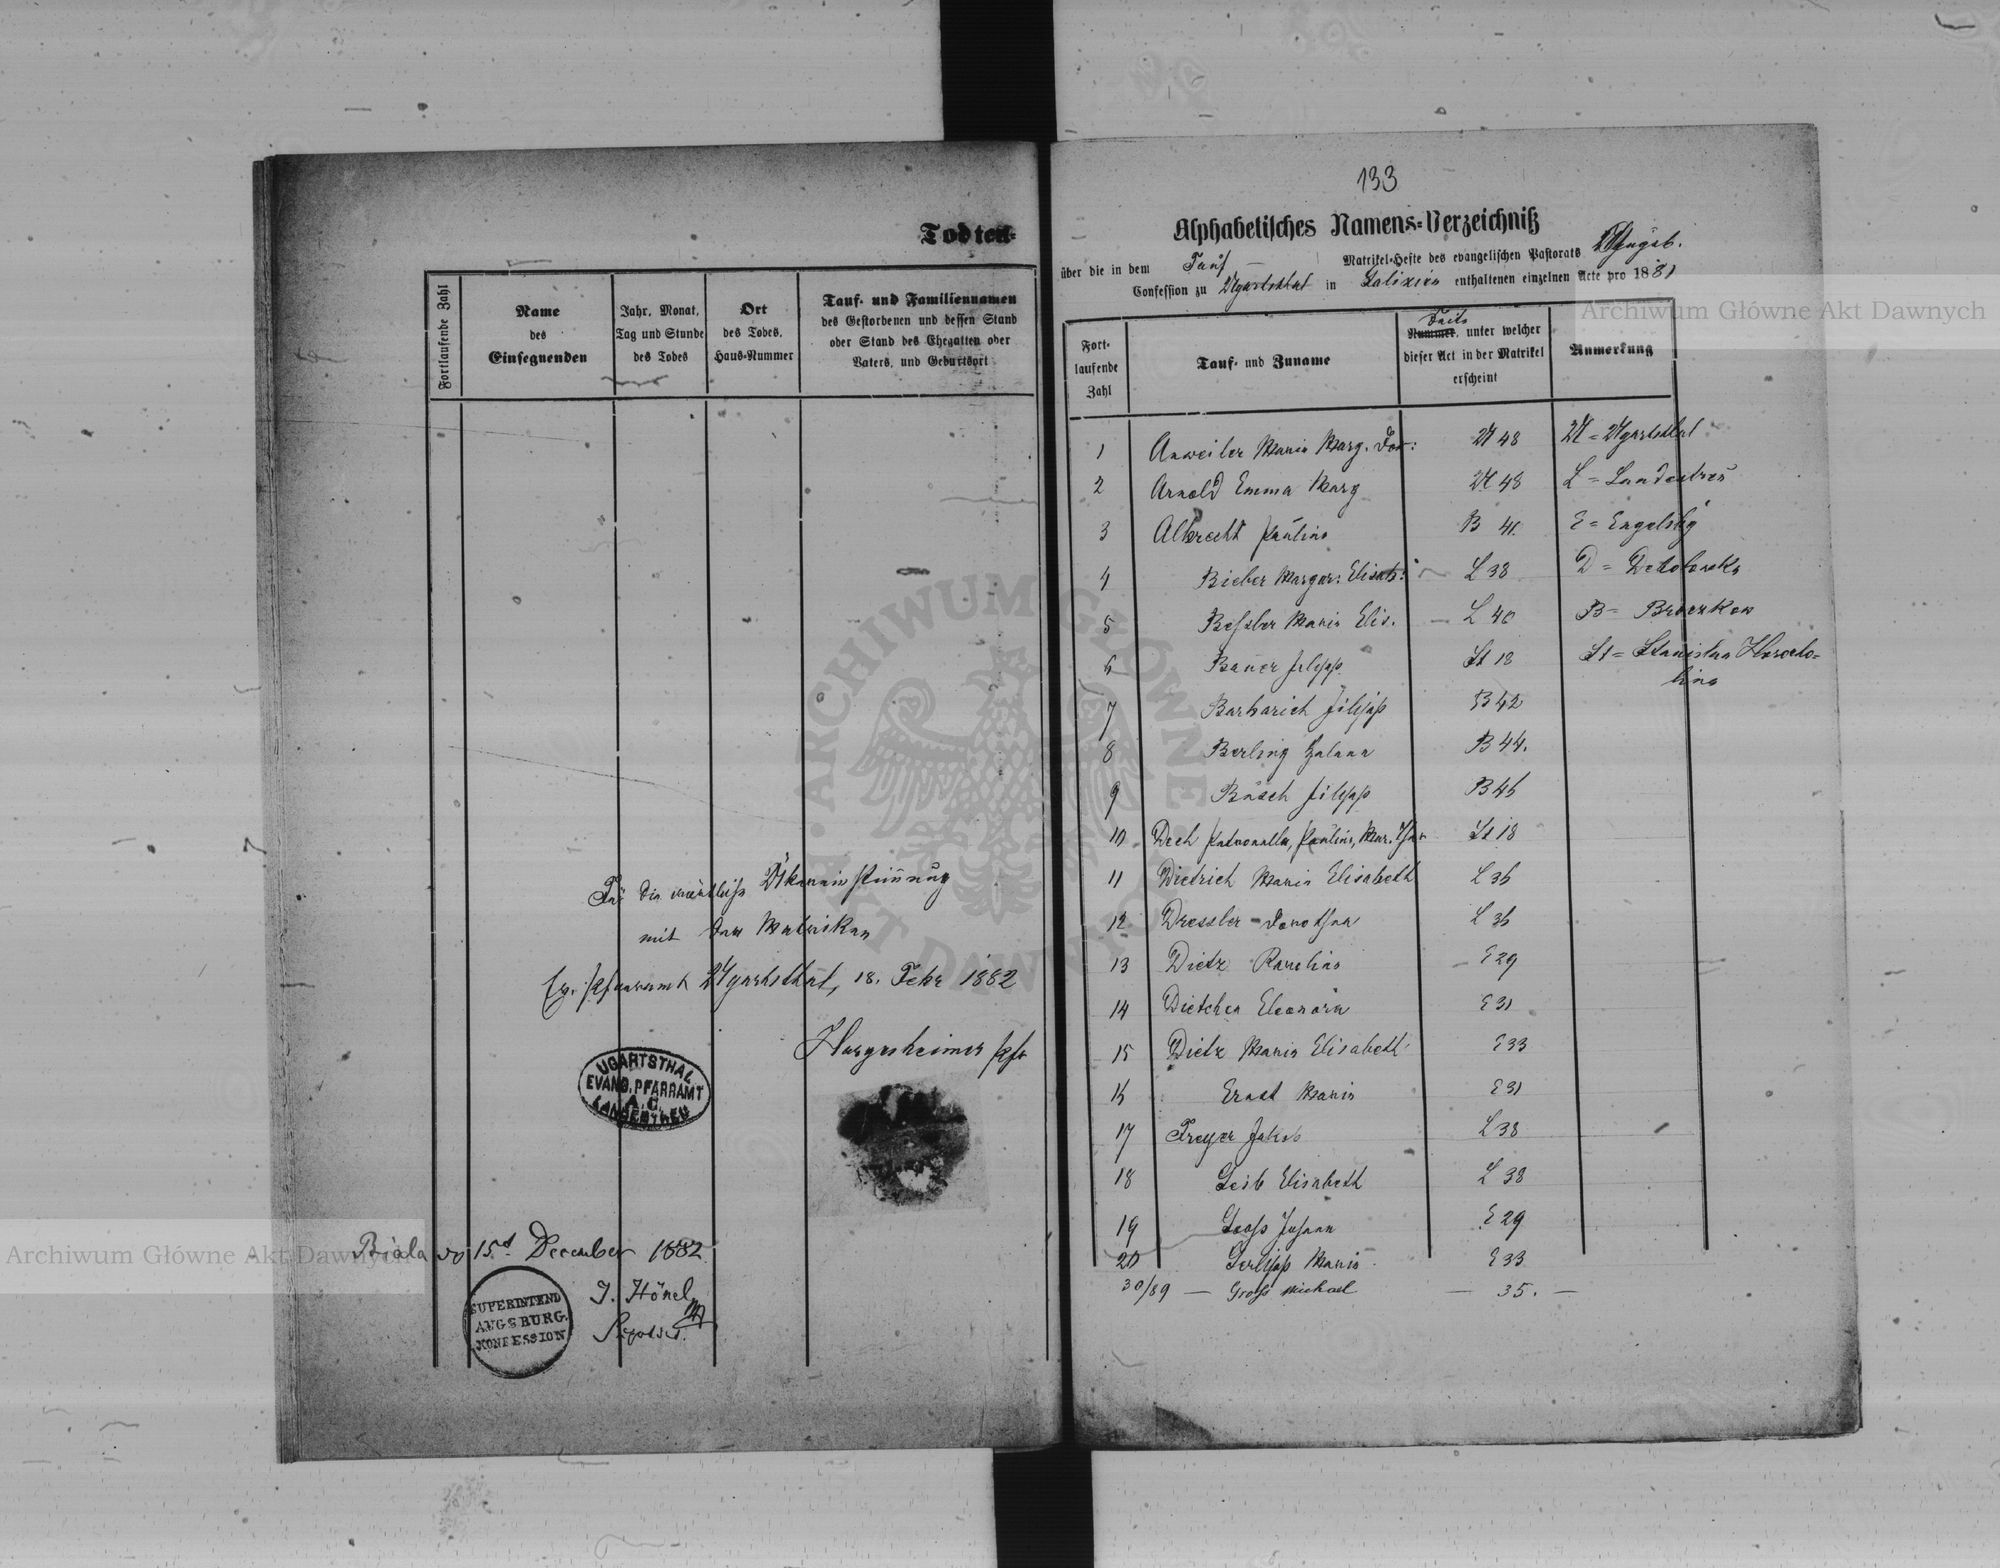 Todten-
Fortlaufende Zahl
Name
des
Einsegnenden
Jahr, Monat,
Tag und Stunde
des Todes
Ort
des Todes,
Haus-Nummer
Tauf- und Familiennamen
des Gestorbenen und dessen Stand
oder Stand des Ehegatten oder
Vaters, und Geburtsort
Für die wörtliche Übereinstimmung
mit den Matriken
Ev. Pfarramt Ugartsthal, 18. Febr 1882
Hargesheimer Pfr
UGARTSTHAL
EVANG. PFARRAMT
A. C.
LANDESTREU
Biala 15 December 1882
J. Hönel
SUPERINTEND
AUGSBURG.
KONFESSION
133
Alphabetisches Namens-Verzeichniß
über die in dem Tauf Matrikel-Hefte des evangelischen Pastorats Augsb.
Confession zu Ugartsthal in Galizien enthaltenen einzelnen Acte pro 1881
Fort-
laufende
Zahl
Tauf- und Zuname
Seite
Nummer, unter welcher
dieser Act in der Matrikel
erscheint
Anmerkung
1 Anweiler Maria Marg. Dor: U 48 U = Ugartsthal
2 Arnold Emma Marg U 48 L = Landestreu
3 Albrecht Paulina B 41. E = Engelsbg
4 Bieber Margar: Elisab: L 38 D =
5 Maria Elis. L 40 B = Broczkow
6 Bauer Philipp St 18 St = Stanislau
7 Philipp B 42
8 Berling Helena B 44.
9 Busch Philipp B 46
10 Dech Petronella, Paulina, Mar. St 18
11 Dietrich Maria Elisabeth L 36
12 Dressler Dorothea L 36
13 Dietz Karolina E 29
14 Eleonora E 31
15 Dietz Maria Elisabeth E 33
16 Ernst Maria E 31
17 Freyer Jakob L 38
18 Geib Elisabeth L 38
19 Johann E 29
20 Maria E 33
30/89 — Groß Michael — 35. —
ARCHIWUM GŁÓWNE AKT DAWNYCH
Archiwum Główne Akt Dawnych
Archiwum Główne Akt Dawnych